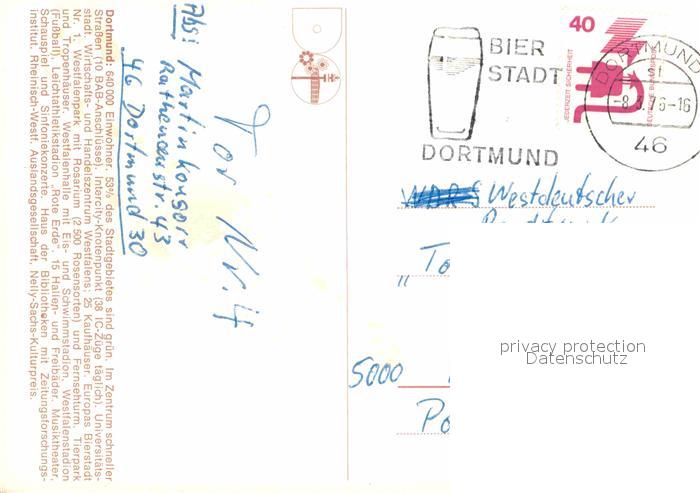 Dortmund: 640 000 Einwohner. 53% des Stadtgebietes sind grün. Im Zentrum schneller
Straßen (10 BAB-Anschlüsse). Intercity-Knotenpunkt (38 IC-Züge täglich). Universitäts-
stadt. Wirtschafts- und Handelszentrum Westfalens; 25 Kaufhäuser. Europas Bierstadt
Nr. 1. Westfalenpark mit Rosarium (2 500 Rosensorten) und Fernsehturm. Tierpark
und Tropenhäuser. Westfalenhalle mit Eis- und Schwimmstadion, Westfalenstadion
(Fußball), Leichtathletikstadion „Rote Erde“ 15 Hallen- und Freibäder. Musiktheater,
Schauspiel und Sinfoniekonzerte. Haus der Bibliotheken mit Zeitungsforschungs-
institut. Rheinisch-Westf. Auslandsgesellschaft. Nelly-Sachs-Kulturpreis.
Abs: Martin
Rathenaustr 43
46 Dortmund 30
Tor Nr. 4
BIER
STADT
DORTMUND
40
JEDERZEIT SICHERHEIT
DEUTSCHE BUNDESPOST
DORTMUND
-8.3.76-16
46
WDR Westdeutscher
„To
5000
Po
privacy protection
Datenschutz